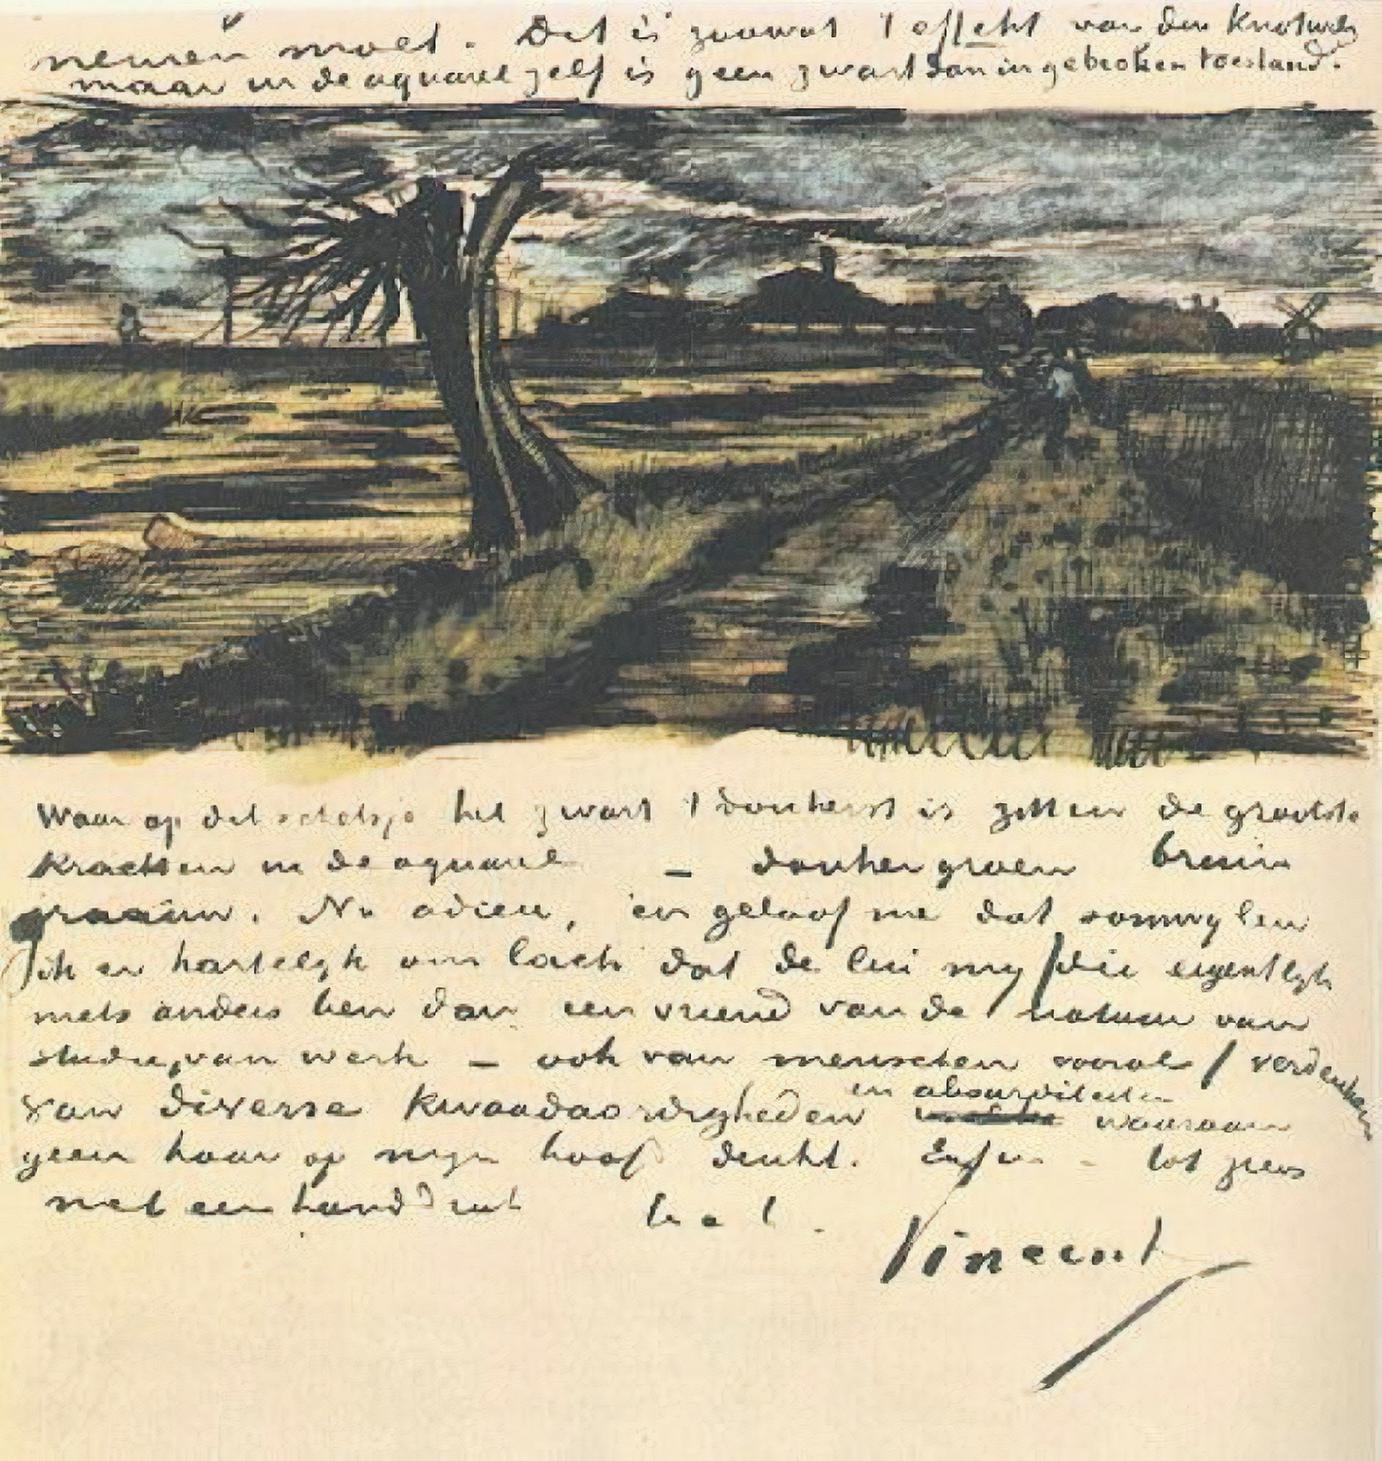 nemen moet. Dit is zoowat 't effekt van den Knotwilg
maar in de aquarel zelf is geen zwart dan in gebroken toestand.
Waar op dit schetsje het zwart 't donkerst is zitten de grootste
krachten in de aquarel – donkergroen bruin
graauw. Nu adieu, en geloof me dat somwylen
ik er hartelyk om lach dat de lui my /die eigentlyk
niets anders ben dan een vriend van de natuur van
studie, van werk – ook van menschen vooral/ verdenken
van diverse kwaadaardigheden en absurditeiten waaraan
geen haar op myn hoof denkt. Enfin – tot ziens
met een handdruk t. à t.
Vincent